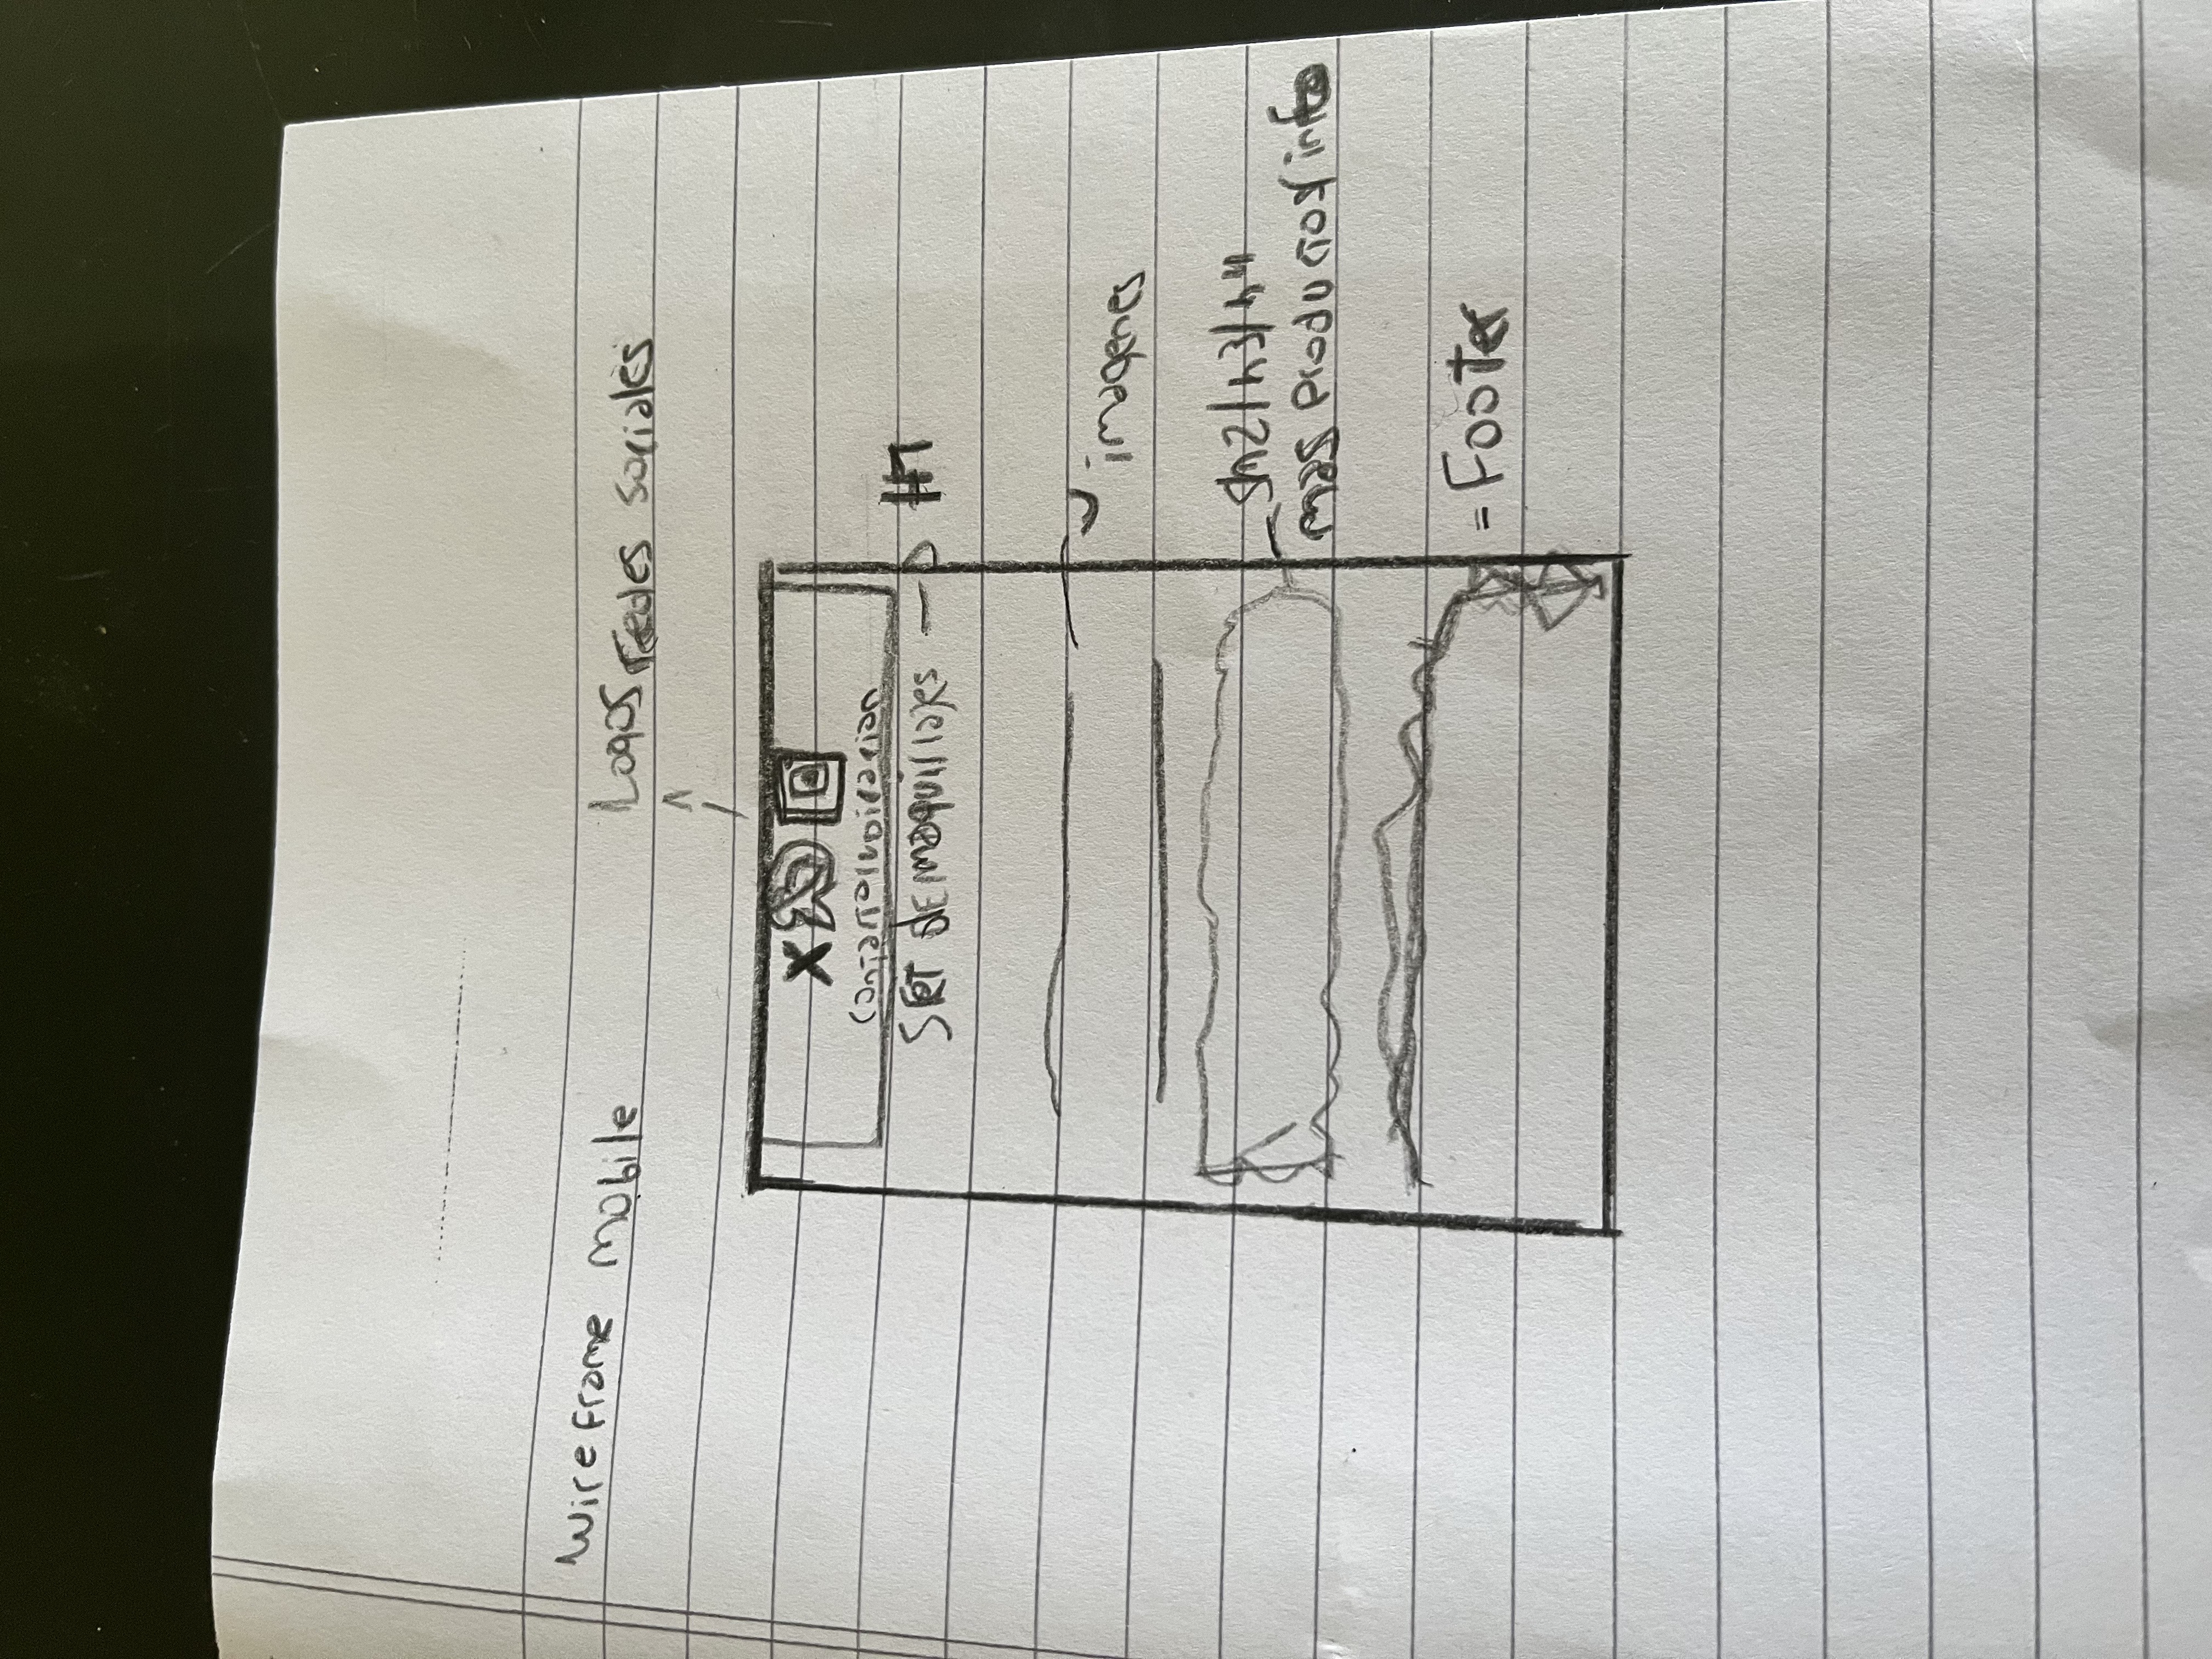 Wireframe mobile
Logos redes sociales
X
Contacto/ubicacion
SET DE maquillajes
H1
imagenes
h2/h3/h4
mas productos/info
= Footer